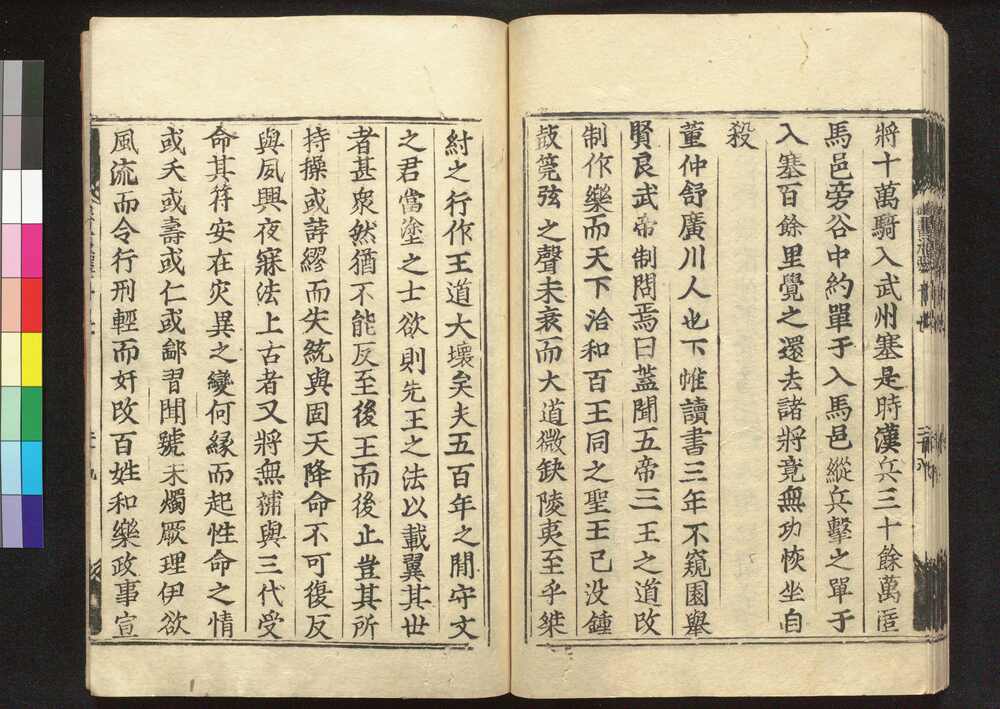 將十萬騎入武州塞是時漢兵三十餘萬匿
馬邑旁谷中約單于入馬邑縱兵擊之單于
入塞百餘里覺之還去諸將竟無功恢坐自
殺
董仲舒廣川人也下帷讀書三年不窺園舉
賢良武帝制問焉曰蓋聞五帝三王之道改
制作樂而天下洽和百王同之聖王已没鍾
鼓筦弦之聲未衰而大道微缺陵夷至乎桀
紂之行作王道大壞矣夫五百年之間守文
之君當塗之士欲則先王之法以載翼其世
者甚衆然猶不能反至後王而後止豈其所
持操或誖繆而失統與固天降命不可復反
與夙興夜寐法上古者又將無補與三代受
命其符安在灾異之變何緣而起性命之情
或夭或壽或仁或鄙習聞號未燭厥理伊欲
風流而令行刑輕而奸改百姓和樂政事宣